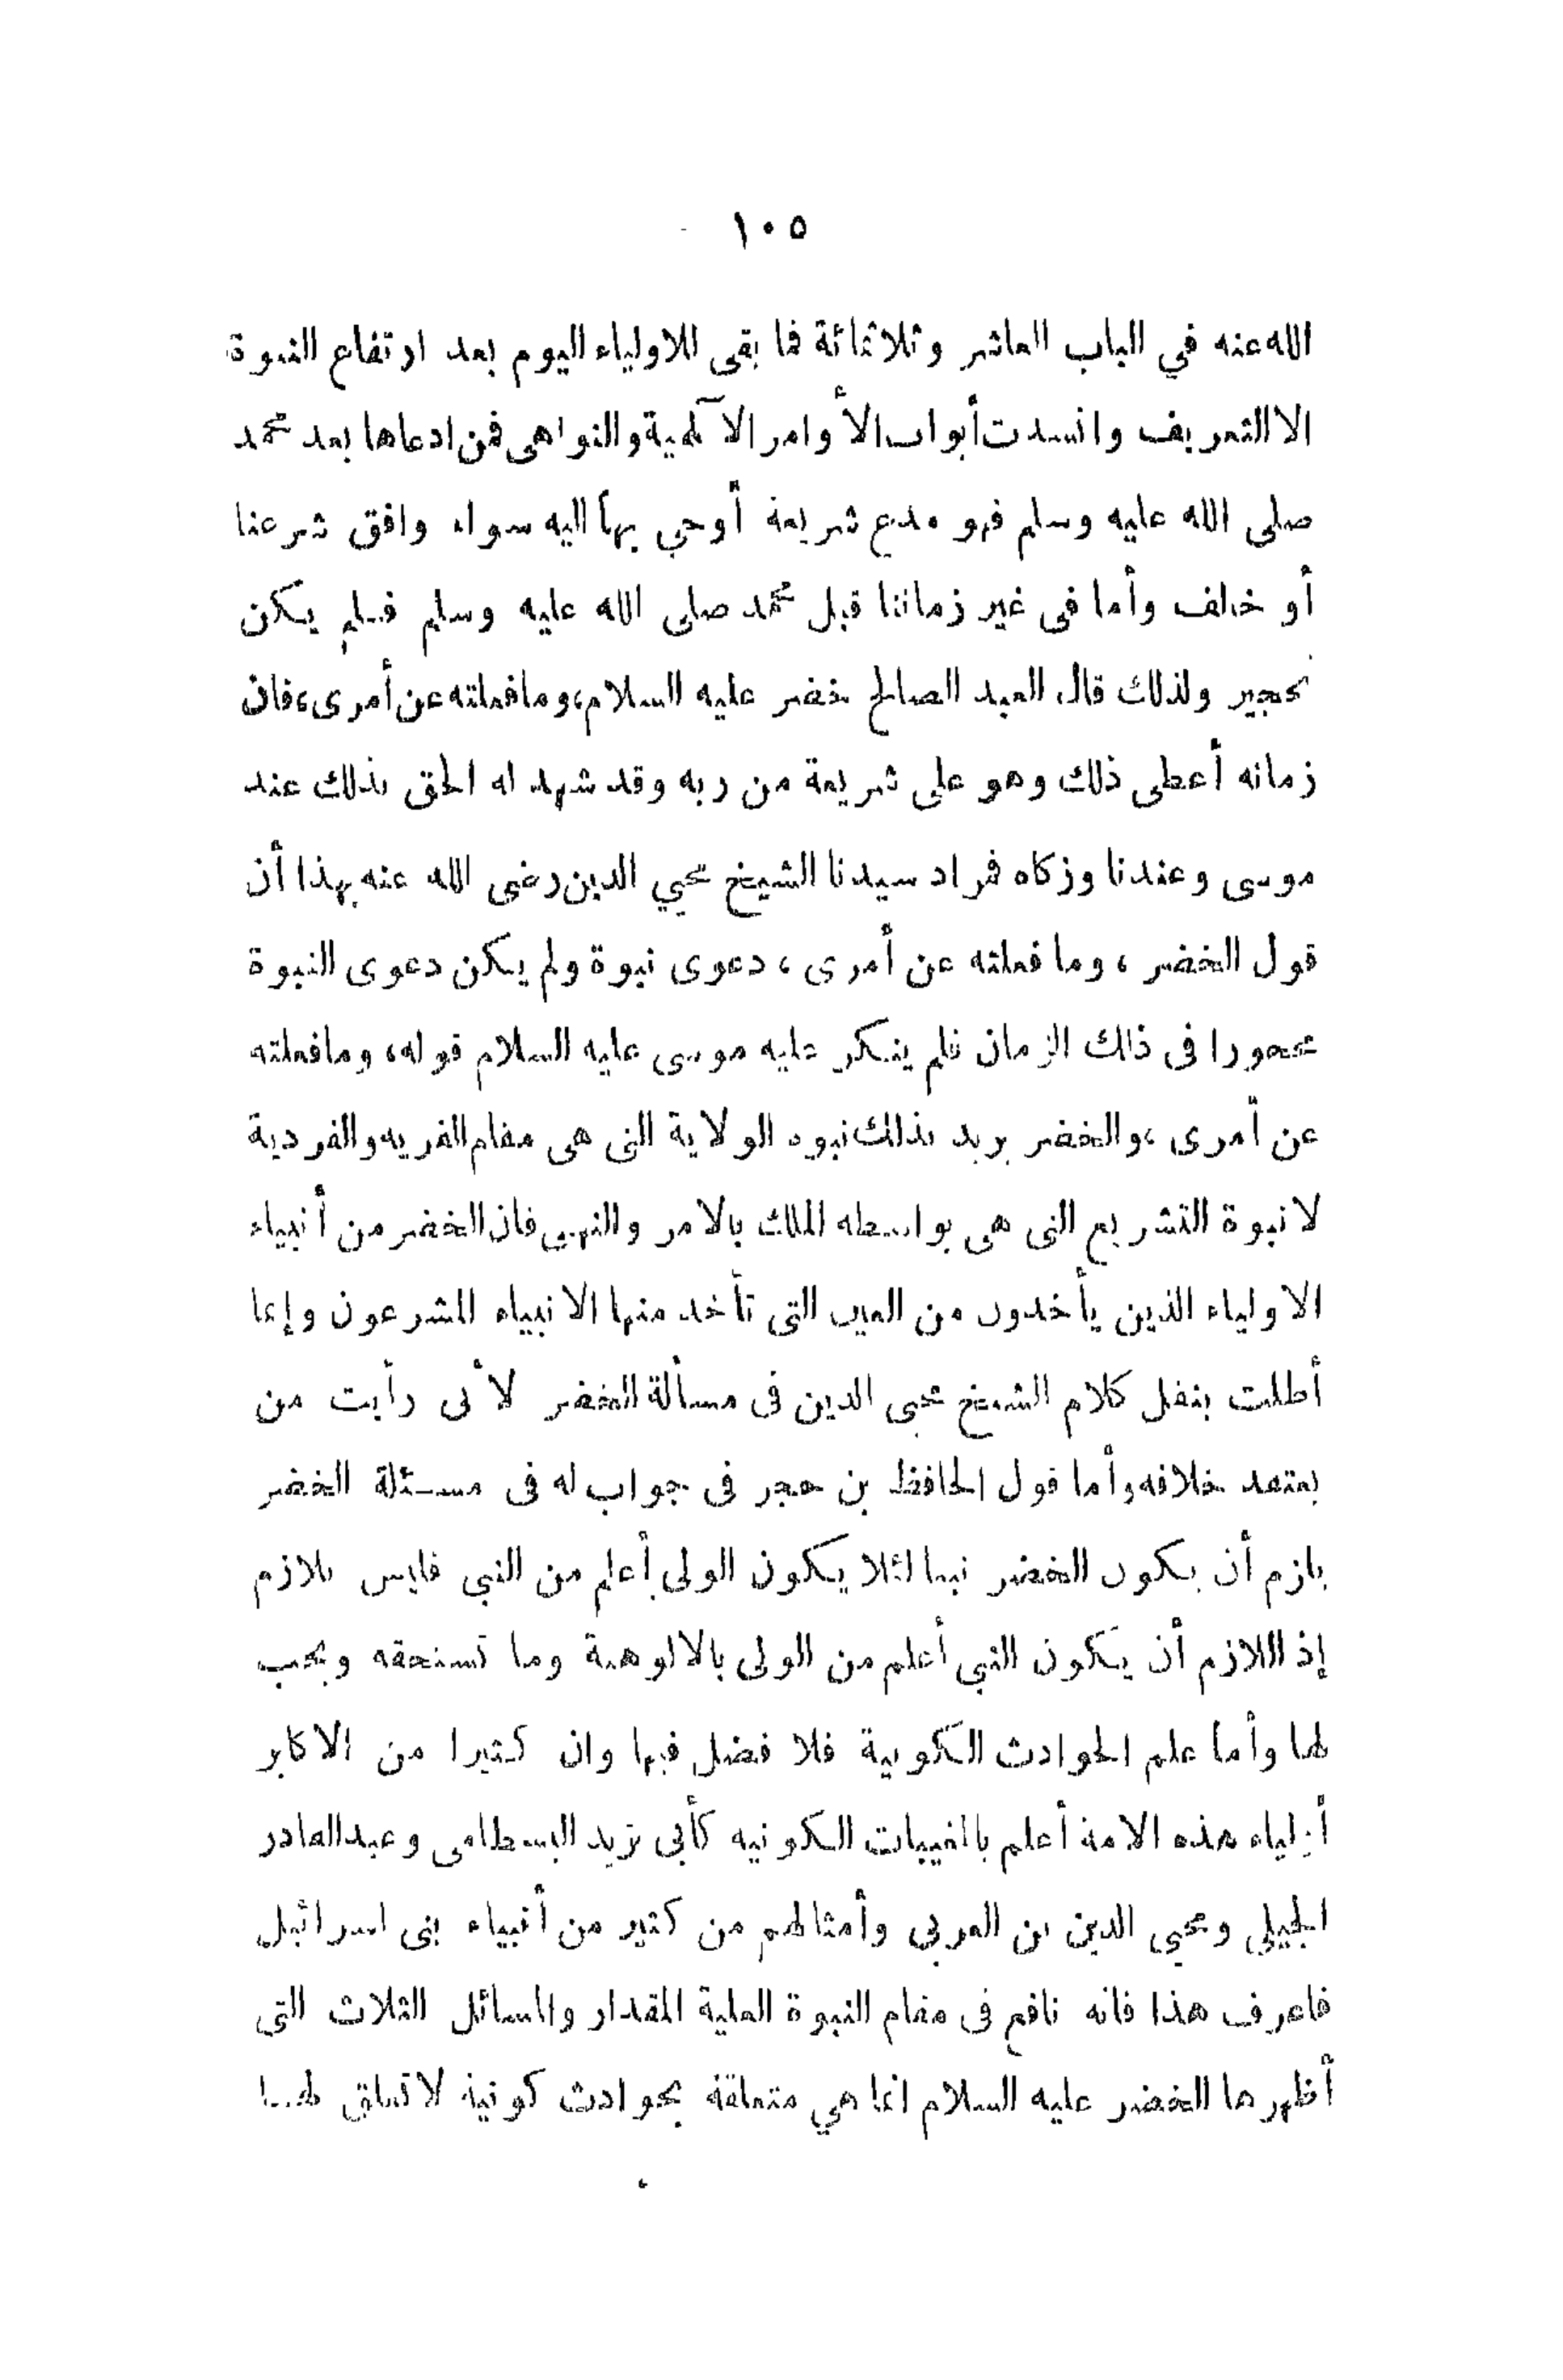 ١٠٥
الله عنه في الباب العاشر وثلاثمائة فما بقى للاولياء اليوم بعد ارتفاع النبوة
الا التعريف وانسدت أبواب الأوامر الآلهية والنواهى فمن ادعاها بعد محمد
صلى الله عليه وسلم فهو مدع شريعة أوحي بها اليه سواء وافق شرعنا
أو خالف وأما فى غير زماننا قبل محمد صلى الله عليه وسلم فلم يكن
تحجير ولذلك قال العبد الصالح خضر عليه السلام، وما فعلته عن أمرى، فان
زمانه أعطى ذلك وهو على شريعة من ربه وقد شهد له الحق بذلك عند
موسى وعندنا وزكاه فمراد سيدنا الشيخ محيي الدين رضى الله عنه بهذا أن
قول الخضر ، وما فعلته عن أمرى ، دعوى نبوة ولم يكن دعوى النبوة
محجورا فى ذلك الزمان فلم ينكر عليه موسى عليه السلام قوله، وما فعلته
عن أمرى ،والخضر يريد بذلك نبوه الولاية التى هى مقام القربه والفردية
لا نبوة التشريع التى هى بواسطه الملك بالامر والنهي فان الخضر من أنبياء
الاولياء الذين يأخذون من العين التى تأخذ منها الانبياء المشرعون وإنما
أطلت بنقل كلام الشيخ محيى الدين فى مسألة الخضر لأنى رأيت من
يعتقد خلافه وأما قول الحافظ بن حجر فى جواب له فى مسئلة الخضر
يلزم أن يكون الخضر نبيا لئلا يكون الولى أعلم من النبي فليس بلازم
إذ اللازم أن يكون النبي أعلم من الولى بالالوهية وما تستحقه ويجب
لها وأما علم الحوادث الكونية فلا فضل فيها وان كثيرا من الاكابر
أولياء هذه الامة أعلم بالغيبات الكونيه كأبى يزيد البسطامى وعبد القادر
الجيلي ومحيي الدين بن العربى وأمثالهم من كثير من أنبياء بنى اسرائيل
فاعرف هذا فانه نافع فى مقام النبوة العلية المقدار والمسائل الثلاث التى
أظهرها الخضر عليه السلام انما هي متعلقة بحوادث كونية لا تعلق لهما